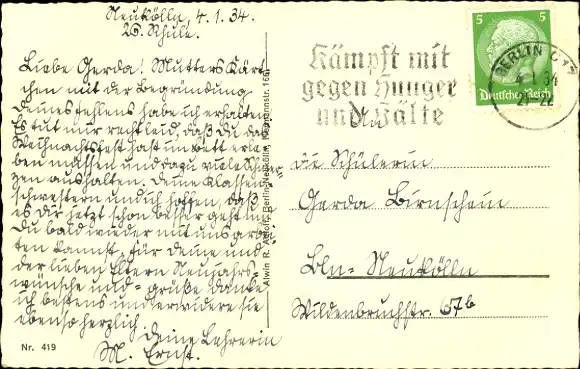 Neukölln, 4.1.34.
26. Schule.
Liebe Gerda! Mutters Kärt-
chen mit der Begründung
Deines Fehlens habe ich erhalten.
Es tut mir recht leid, daß Du das
Weihnachtsfest hast im Bett erle-
ben müssen und dazu viele Schmer-
zen aushalten. Deine Klassen-
schwestern und ich hoffen, daß
es Dir jetzt schon besser geht und
Du bald wieder mit uns arbei-
ten kannst. Für Deine und
der lieben Eltern Neujahrs-
wünsche und -grüße danke
ich bestens und erwidere sie
ebenso herzlich.
Deine Lehrerin
M. Ernst.
Nr. 419
Alwin R. Berlin-Neukölln
Kämpft mit
gegen Hunger
und Kälte
5 5
Deutsches Reich
BERLIN
4.1.34
21-22
An
die Schülerin
Gerda Birnschein
Bln-Neukölln
Wildenbruchstr. 67b